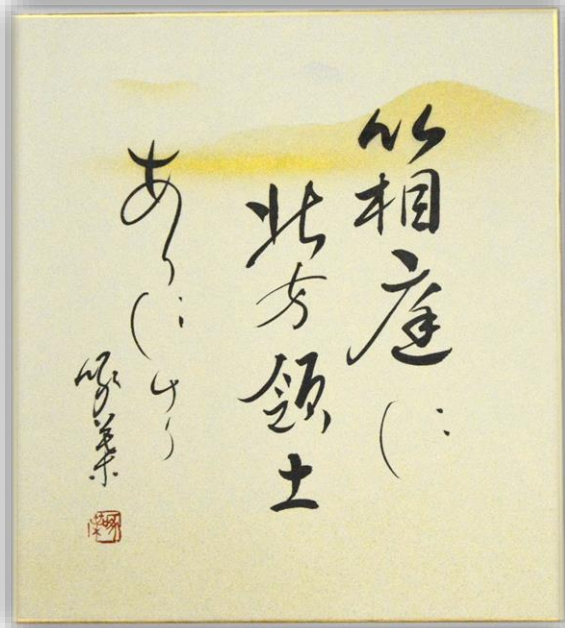 箱庭に
北方領土
ありにけり
啄葉